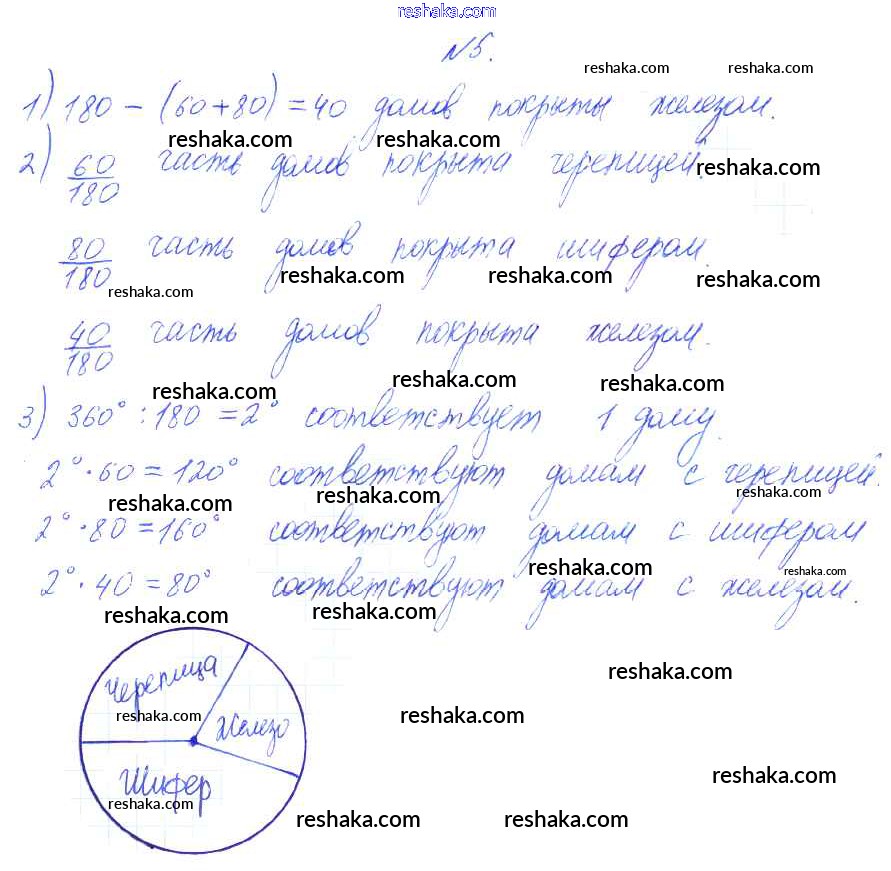 reshaka.com
№5.
reshaka.com reshaka.com
1) 180 - (60+80) = 40 домов покрыты железом.
reshaka.com reshaka.com
2) 60/180 часть домов покрыта черепицей.
reshaka.com
80/180 часть домов покрыта шифером.
reshaka.com reshaka.com reshaka.com reshaka.com
40/180 часть домов покрыта железом.
reshaka.com reshaka.com reshaka.com
3) 360° : 180 = 2° соответствует 1 дому.
2° · 60 = 120° соответствуют домам с черепицей.
reshaka.com reshaka.com reshaka.com
2° · 80 = 160° соответствуют домам с шифером
reshaka.com reshaka.com
2° · 40 = 80° соответствуют домам с железом.
reshaka.com reshaka.com
Черепица
reshaka.com
reshaka.com reshaka.com
Железо
Шифер
reshaka.com
reshaka.com
reshaka.com reshaka.com